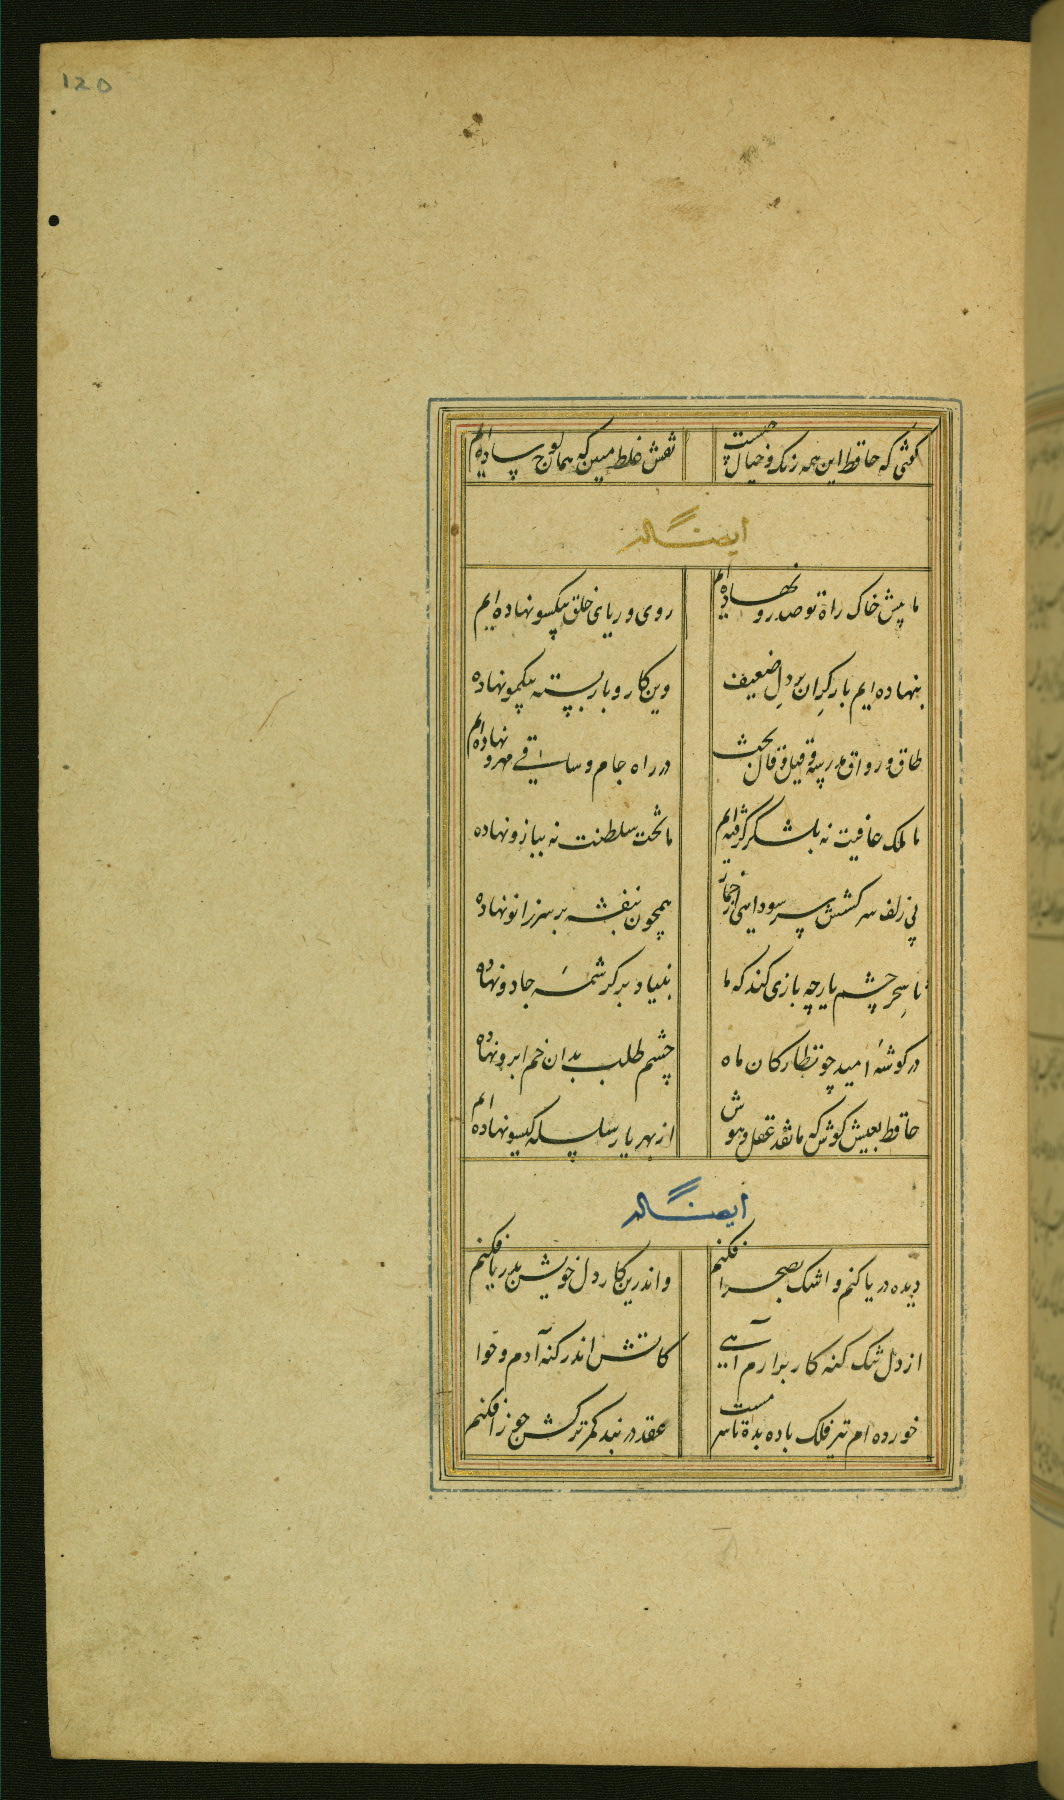 120
گفتی که حافظ این همه رنگ و خیال چیست
نقش غلط مبین که همان لوح ساده‌ایم
ایضاً له
ما پیش خاک راه تو صد رو نهاده‌ایم
روی و ریای خلق بیکسو نهاده‌ایم
بنهاده‌ایم بار گران بر دل ضعیف
وین کار و بار بسته بیکمو نهاده
طاق و رواق مدرسه و قیل و قال بحث
در راه جام و ساقی مهرو نهاده‌ایم
ما ملک عافیت نه بلشکر گرفته‌ایم
ما تخت سلطنت نه ببازو نهاده
بی زلف سرکشش سر سودایی از خمار
همچون بنفشه بر سر زانو نهاده
تا سحر چشم یار چه بازی کند که ما
بنیاد بر کرشمهٔ جادو نهاده
در گوشهٔ امید چو نظارگان ماه
چشم طلب بدان خم ابرو نهاده
حافظ بعیش کوش که ما نقد عقل و هوش
از بهر یار سلسله گیسو نهاده‌ایم
ایضاً له
دیده دریا کنم و اشک بصحرا فکنم
و اندرین کار دل خویش بدریا فکنم
از دل تنک گنه کار برارم آهی
کاتش اندر گنه آدم و حوا
خورده‌ام تیر فلک باده بده تا سرمست
عقد در بند کمر ترکش جوزا فکنم